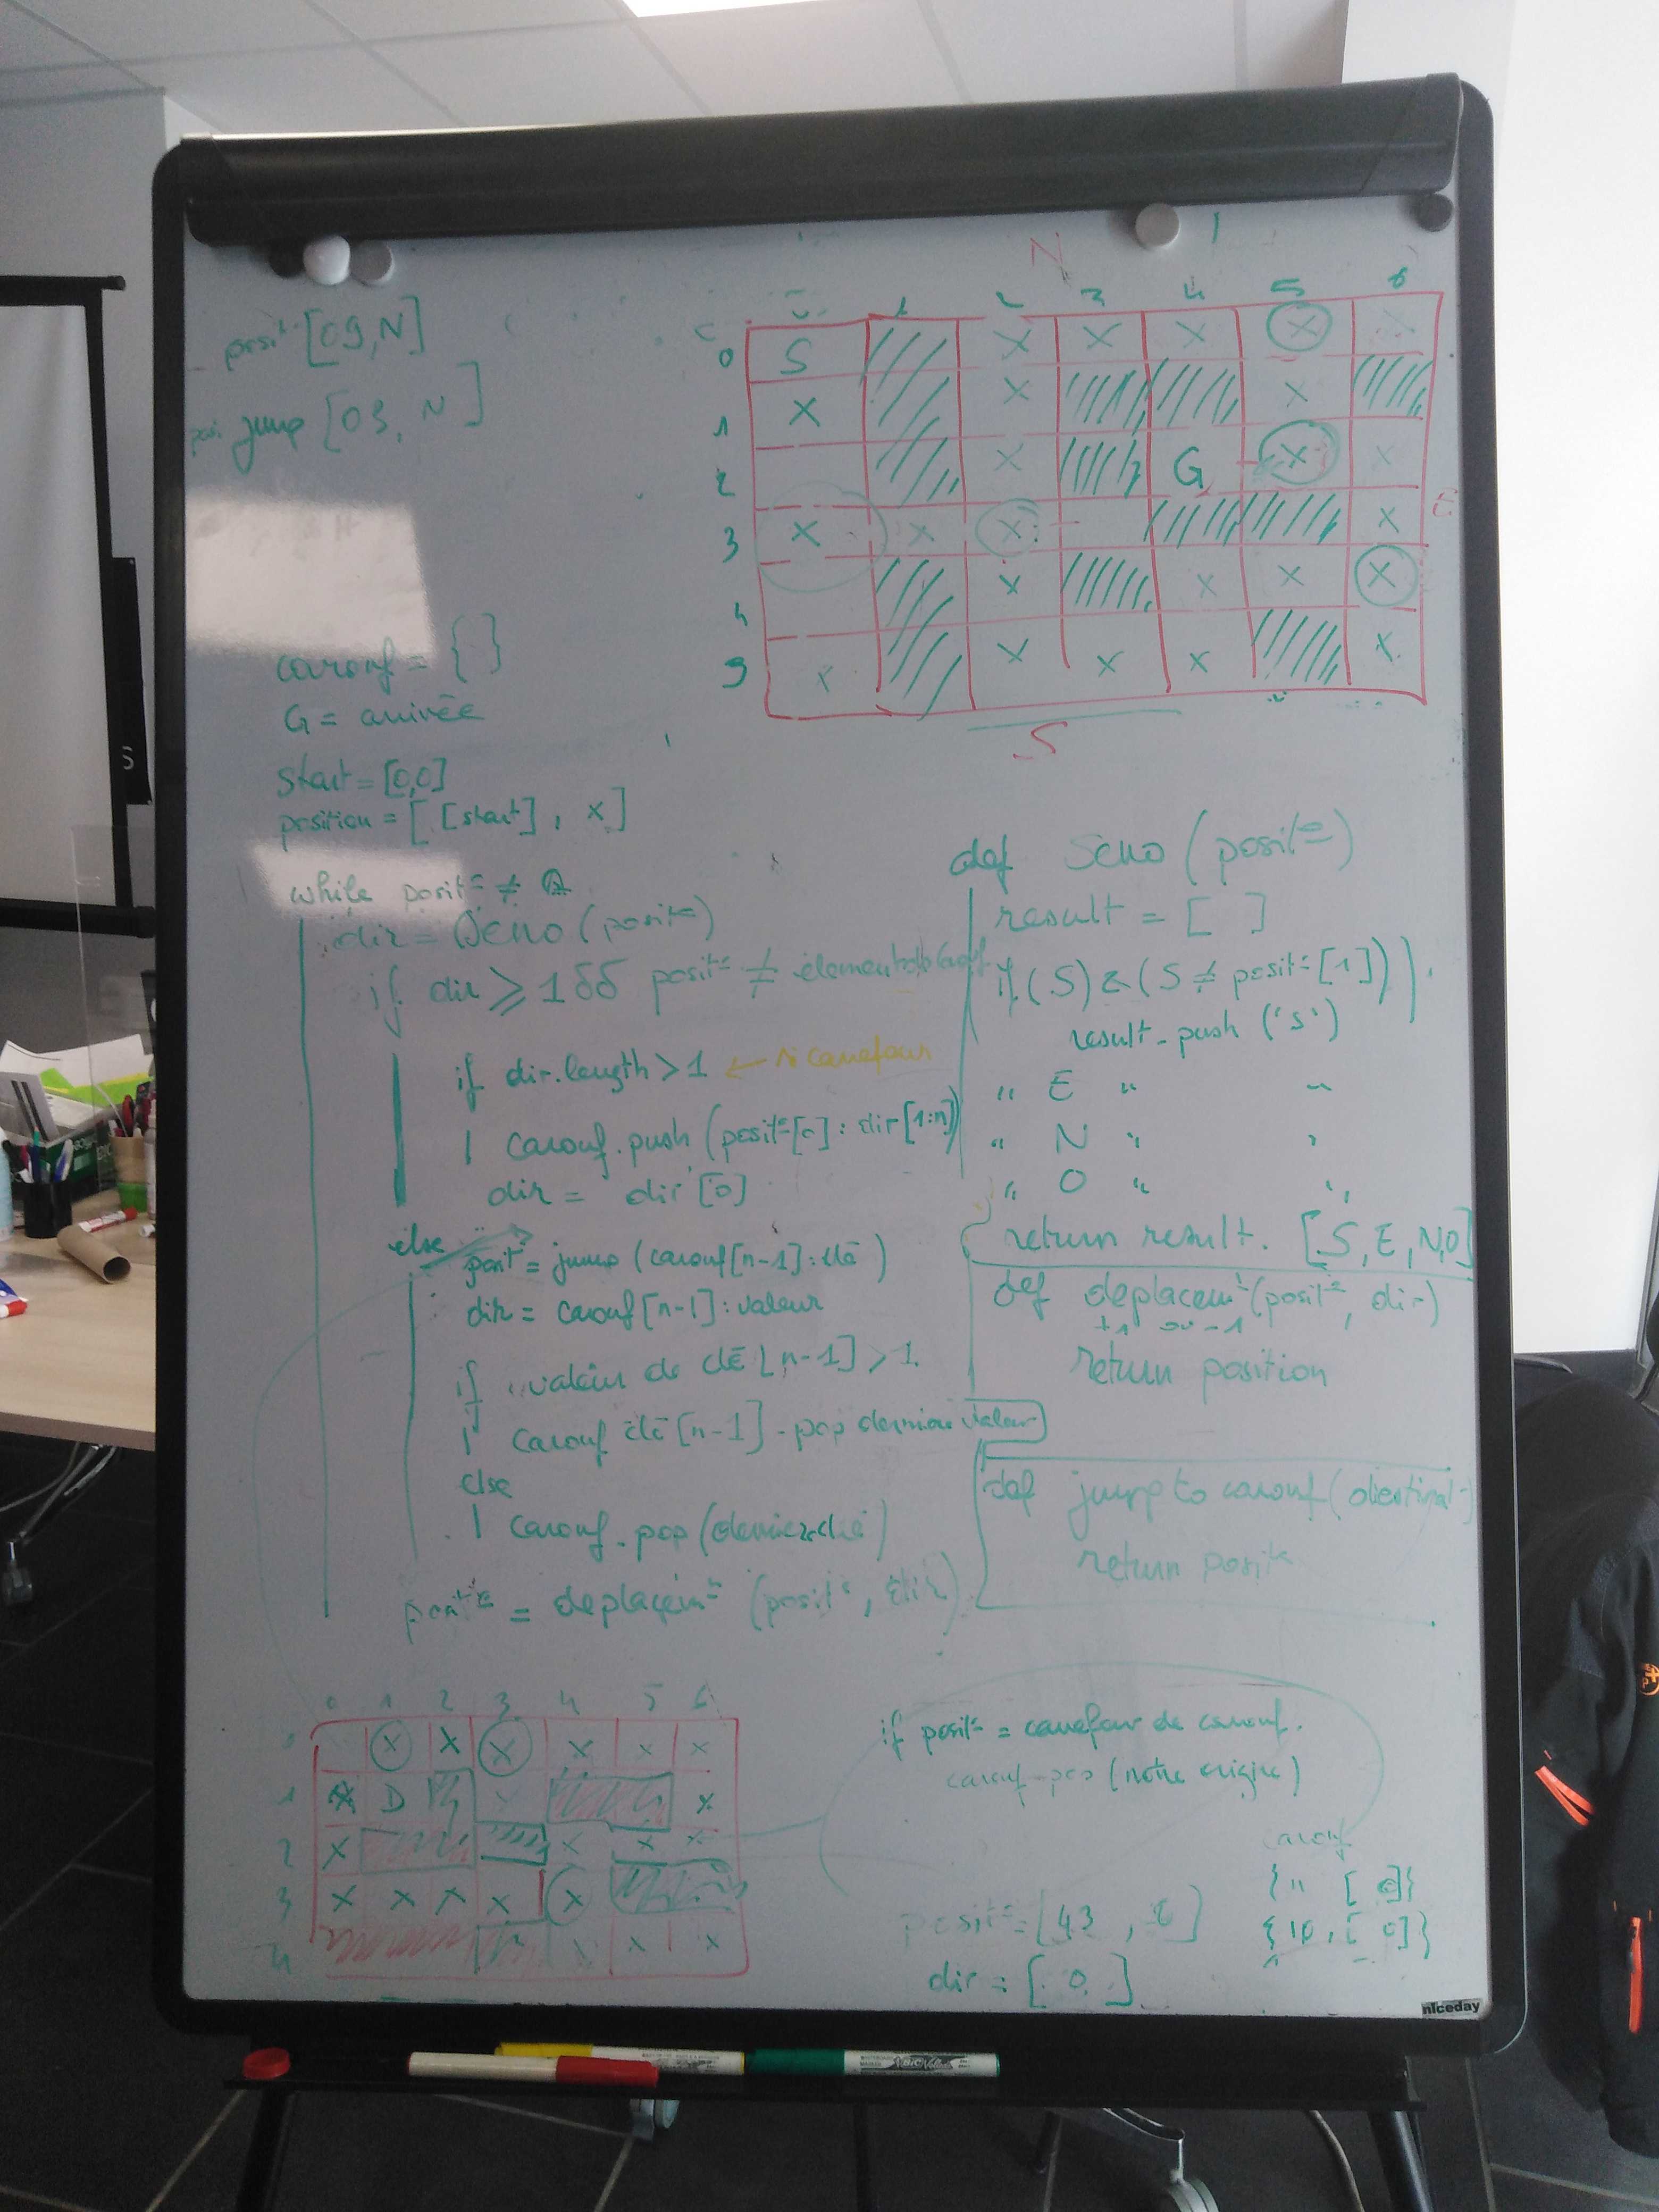 posit= [09, N]
jump [03, N]
N
0 1 2 3 4 5 6
0 S X X X X X
1 X X X
2 X G X X
3 X X X X
4 X X X X
5 X X X X X
E
S
carouf = { }
G = arrivée
Start = [0,0]
position = [ [start] , x ]
while posit= ≠ G
dir = Seno (posit=)
if dir ⩾ 1 && posit= ≠
if dir.length > 1 ← si carrefour
carouf.push (posit=[0] : dir[1:n])
dir = dir [0]
else
posit= = jump (carouf[n-1] : clé )
dir = carouf [n-1] : valeur
if valeur de clé [n-1] > 1
carouf clé [n-1] - pop dernière valeur
else
carouf - pop (dernière clé)
posit= = deplacemt= (posit=, dir)
def Seno (posit=)
result = [ ]
if (S) & (S ≠ posit= [1]))
result - push ('S')
" E " "
" N " "
" O " "
return result. [S, E, N, O]
def deplacemt= (posit=, dir)
+1 ou -1
return position
def jump to carouf (destinat=)
return posit=
0 1 2 3 4 5 6
X X X X X X
1 X D X
2 X X X X
3 X X X X X
4 X X
if posit= = carrefour de carouf.
carouf - pop (notre origine)
carouf
{11 [ 0]}
{10, [ 0]}
posit= = [43 , ]
dir = [ 0 ]
niceday